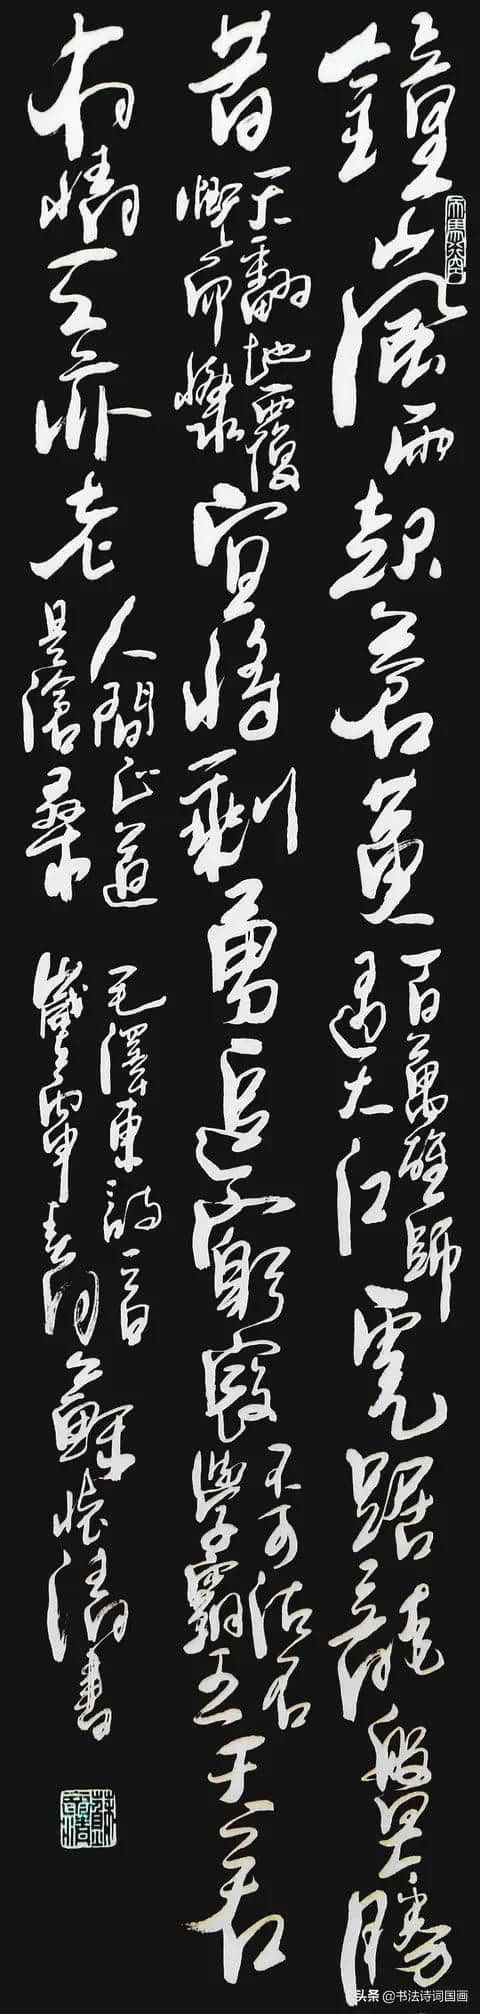 鐘山風雨起蒼黃
百萬雄師
過大江
虎踞龍盤今勝
昔
天翻地覆
慨而慷
宜將剩勇追窮寇
不可沽名
學霸王
天若
有情天亦老
人間正道
是滄桑
毛澤東詩一首
蘇 書
天馬行空
头条 @书法诗词国画